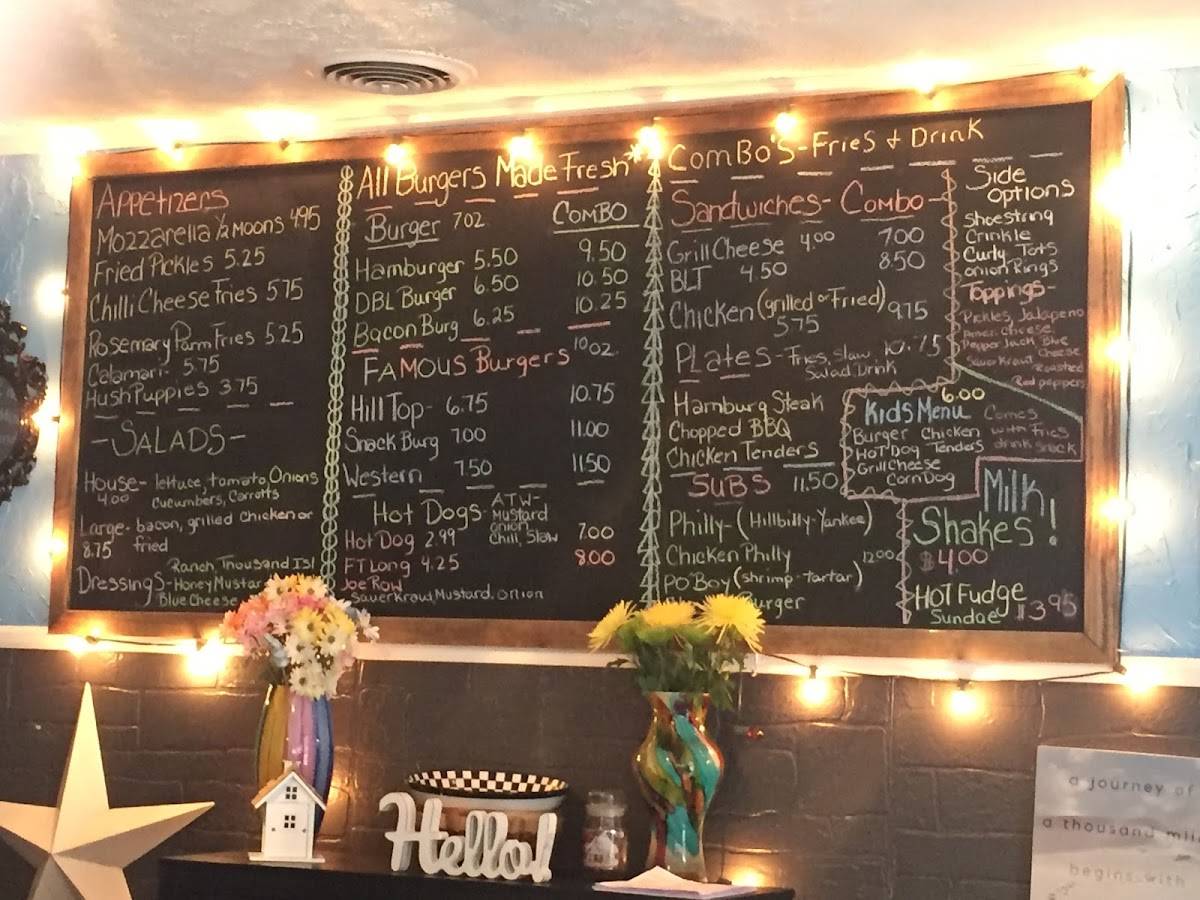 Appetizers
Mozzarella 1/2 Moons 4.95
Fried Pickles 5.25
Chilli Cheese Fries 5.75
Rosemary Parm Fries 5.25
Calamari- 5.75
Hush Puppies 3.75
-SALADS-
House- lettuce, tomato Onions
4.00 Cucumbers, Carrotts
Large- bacon, grilled chicken or
8.75 fried
Ranch, Thousand Isl
Dressings- Honey Mustar
Blue Cheese
All Burgers Made Fresh*
Burger 7oz COMBO
Hamburger 5.50 9.50
DBL Burger 6.50 10.50
Bacon Burg 6.25 10.25
FAMOUS Burgers 10oz.
Hill Top- 6.75 10.75
Snack Burg 7.00 11.00
Western 7.50 11.50
Hot Dogs- ATW-
Mustard
onion
Chili, Slaw
Hot Dog 2.99 7.00
FT Long 4.25 8.00
Joe Row
Sauerkraw, Mustard, onion
ComBo's-Fries & Drink
Sandwiches- Combo-
Grill Cheese 4.00 7.00
BLT 4.50 8.50
Chicken (grilled or Fried) 9.75
5.75
PLates- Fries, Slaw 10.75
Salad Drink
Hamburg Steak
Chopped BBQ
Chicken Tenders
SUBS 11.50
Philly- (Hillbilly-Yankee)
Chicken Philly 12.00
PO'Boy (shrimp-tartar)
urger
Side
Options
Shoestring
Crinkle
Curly Tots
onion Rings
Toppings-
Pickles, Jalapeno
Amer. Cheese
Pepper Jack, Blue
Cheese
Sauer Kraut, roasted
Red peppers
6.00
Kids Menu
Burger Chicken
HOT Dog Tenders
Grill Cheese
Corn Dog
Comes
with Fries
drink
Milk
Shakes!
$4.00
HOT Fudge
Sundae $3.95
Hello!
a journey of
a thousand mil
begins with